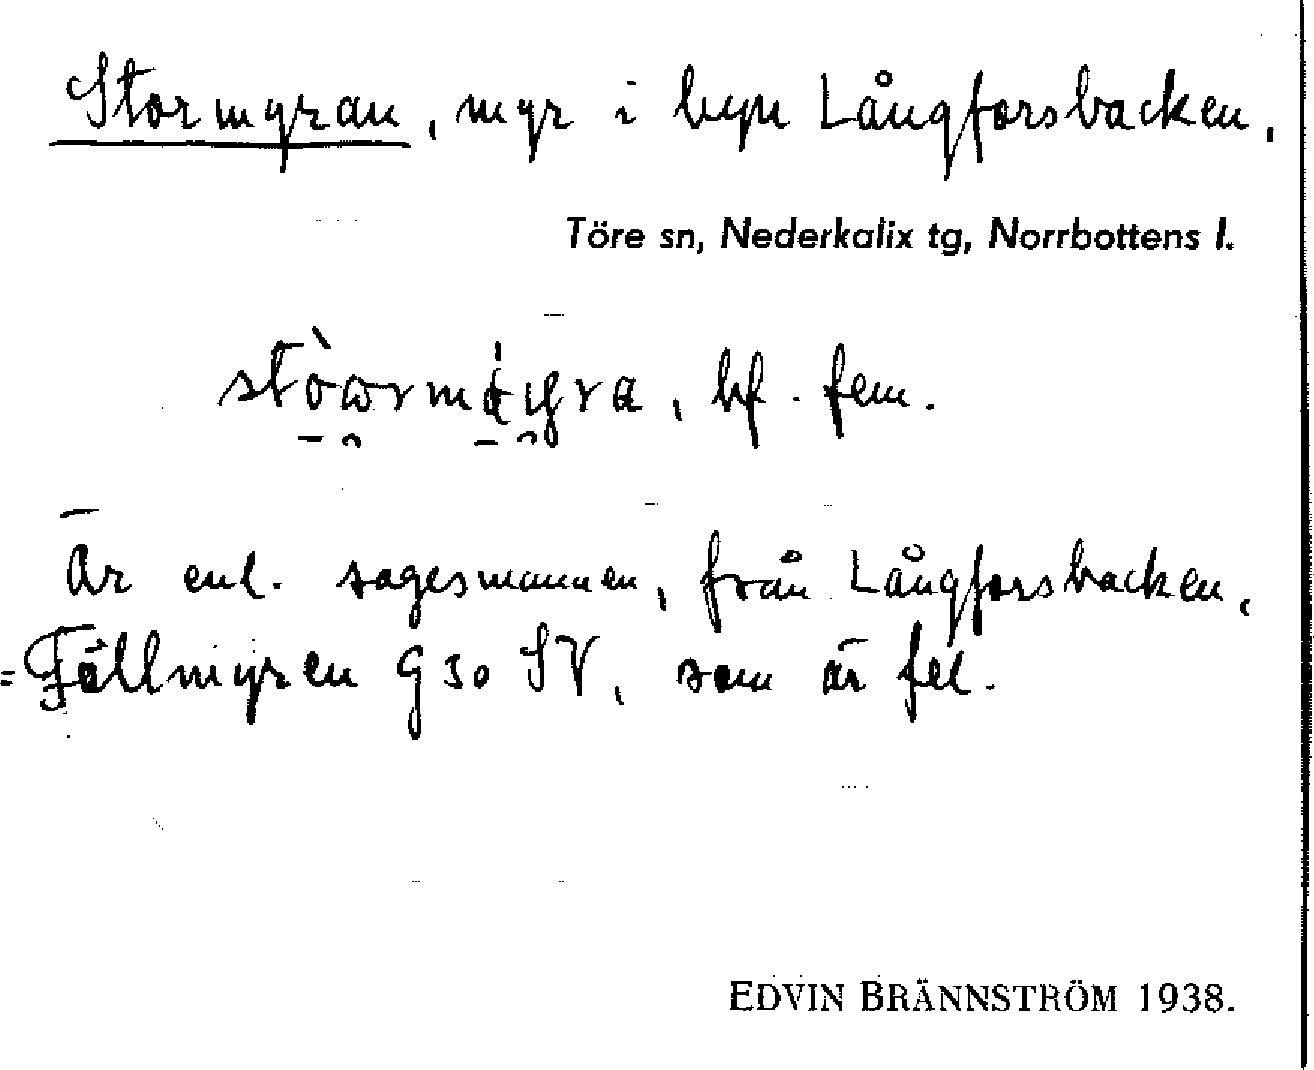 Stormyran, myr i byn Långforsbacken,
Töre sn, Nederkalix tg, Norrbottens l.
hf. fem.
Är enl. sagesmannen, från Långforsbacken,
= Fällmyren G 30 SV, som är fel.
EDVIN BRÄNNSTRÖM 1938.